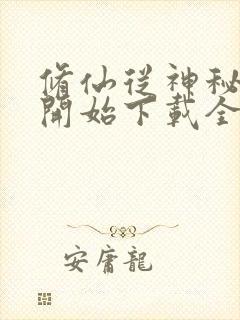 脩仙從神秘
開始下載全
安庸龍